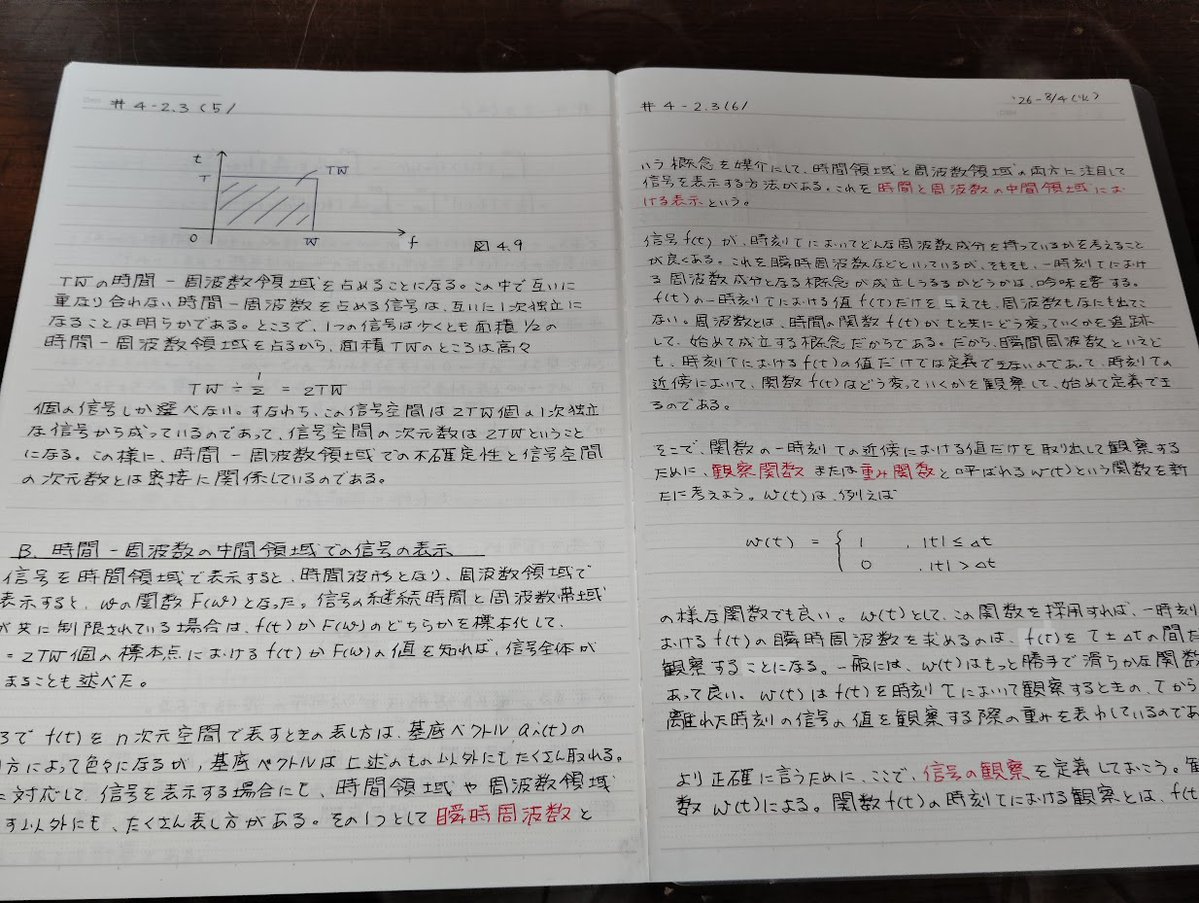 # 4-2.3 (5)
t
T
TW
0
W
f
図4.9
TWの時間-周波数領域を占めることになる。この中で互いに
重なり合わない時間-周波数を占める信号は、互いに1次独立に
なることは明らかである。ところで、1つの信号は少くとも面積1/2の
時間-周波数領域を占るから、面積TWのところは高々
TW ÷ 1/2 = 2TW
個の信号しか選べない。すなわち、この信号空間は2TW個の1次独立
な信号から成っているのであって、信号空間の次元数は2TWということ
になる。この様に、時間-周波数領域での不確定性と信号空間
の次元数とは密接に関係しているのである。
B. 時間-周波数の中間領域での信号の表示
信号を時間領域で表示すると、時間波形となり、周波数領域で
表示すると、wの関数F(w)となった。信号の継続時間と周波数帯域
が共に制限されている場合は、f(t)かF(w)のどちらかを標本化して、
= 2TW個の標本点におけるf(t)かF(w)の値を知れば、信号全体が
まることも述べた。
ろでf(t)をn次元空間で表すときの表し方は、基底ベクトルai(t)の
方によって色々になるが、基底ベクトルは上述のもの以外にもたくさん取れる。
に対応して、信号を表示する場合にも、時間領域や周波数領域
す以外にも、たくさん表し方がある。その1つとして瞬時周波数と
# 4-2.3 (6)
'26-3/4(水)
いう概念を媒介にして、時間領域と周波数領域の両方に注目して
信号を表示する方法がある。これを時間と周波数の中間領域にお
ける表示という。
信号f(t)が、時刻τにおいてどんな周波数成分を持っているかを考えること
が良くある。これを瞬時周波数などといっているが、そもそも、一時刻τにおけ
る周波数成分となる概念が成立しうるかどうかは、吟味を要する。
f(t)の一時刻τにおける値f(τ)だけを与えても、周波数もなにも出てこ
ない。周波数とは、時間の関数f(t)がtと共にどう変っていくかを追跡
して、始めて成立する概念だからである。だから、瞬間周波数といえど
も、時刻τにおけるf(t)の値だけでは定義できないのであって、時刻τの
近傍において、関数f(t)はどう変っていくかを観察して、始めて定義でき
るのである。
そこで、関数の一時刻τの近傍における値だけを取り出して観察する
ために、観察関数または重み関数と呼ばれるw(t)という関数を新
たに考えよう。w(t)は、例えば
w(t) = { 1 , |t| ≤ Δt
0 , |t| > Δt
の様な関数でも良い。w(t)として、この関数を採用すれば、一時刻
おけるf(t)の瞬時周波数を求めるのは、f(t)をτ±Δtの間だ
観察することになる。一般には、w(t)はもっと勝手で滑らかな関数
あって良い。w(t)はf(t)を時刻τにおいて観察するときの、τから
離れた時刻の信号の値を観察する際の重みを表わしているのであ
より正確に言うために、ここで、信号の観察を定義しておこう。観
数w(t)による。関数f(t)の時刻τにおける観察とは、f(t